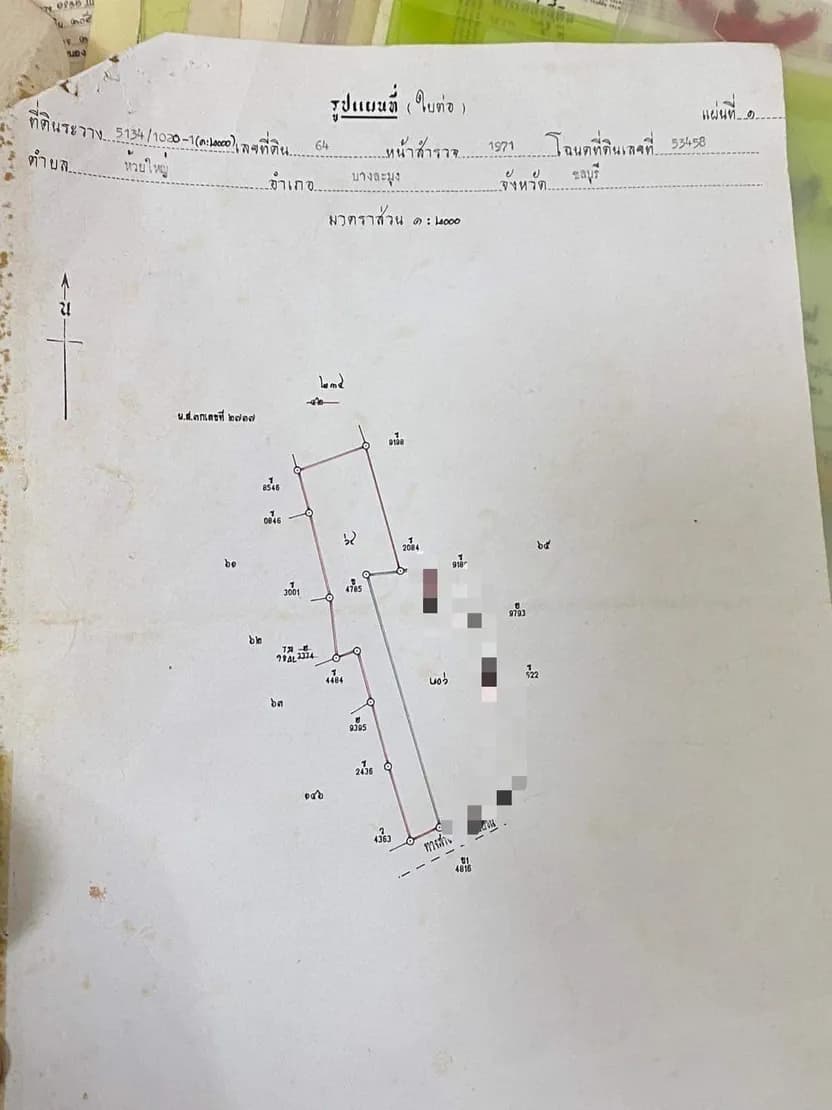 รูปแผนที่ (ใบต่อ)
แผ่นที่ ๑
ที่ดินระวาง 5134/1020-1(๓:๒๐๐๐) เลขที่ดิน 64 หน้าสำรวจ 1971 โฉนดที่ดินเลขที่ 53458
ตำบล ห้วยใหญ่ อำเภอ บางละมุง จังหวัด ชลบุรี
มาตราส่วน ๑ : ๒๐๐๐
น
๒๓๔
น.ส.๓ก เลขที่ ๒๗๑๗
ร
9198
ร
8546
ร
0846
๖๔
ร
2084
๖๕
ร
๖๑
ร
3001
4785
9793
๖๒
3334
ร
4484
๒๐๖
ร
522
๖๓
9395
ร
2436
๑๔๖
4363
4816